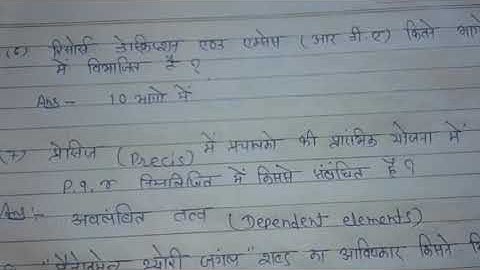 (6) रिसोर्स डेस्क्रिप्शन एण्ड एक्सेस (आर डी ए) कितने भागों
में विभाजित है ?
Ans :- 10 भागो में
(7) प्रेसिज (Precis) में प्रचालको की प्रारंभिक योजना में
P.q.r निम्नलिखित में किससे संबंधित है ?
Ans :- अवलंबित तत्व (Dependent elements)
थ्योरी जंगल" शब्द का आविष्कार किसने